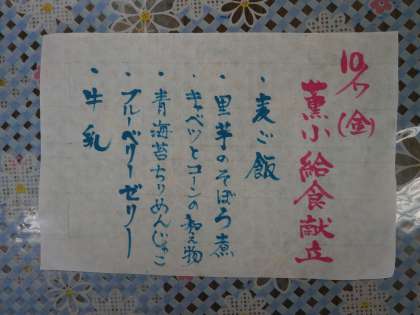 薫小給食献立
・麦ご飯
・里芋のそぼろ煮
・キャベツとコーンの和え物
・青海苔ちりめんじゃこ
・ブルーベリーゼリー
・牛乳